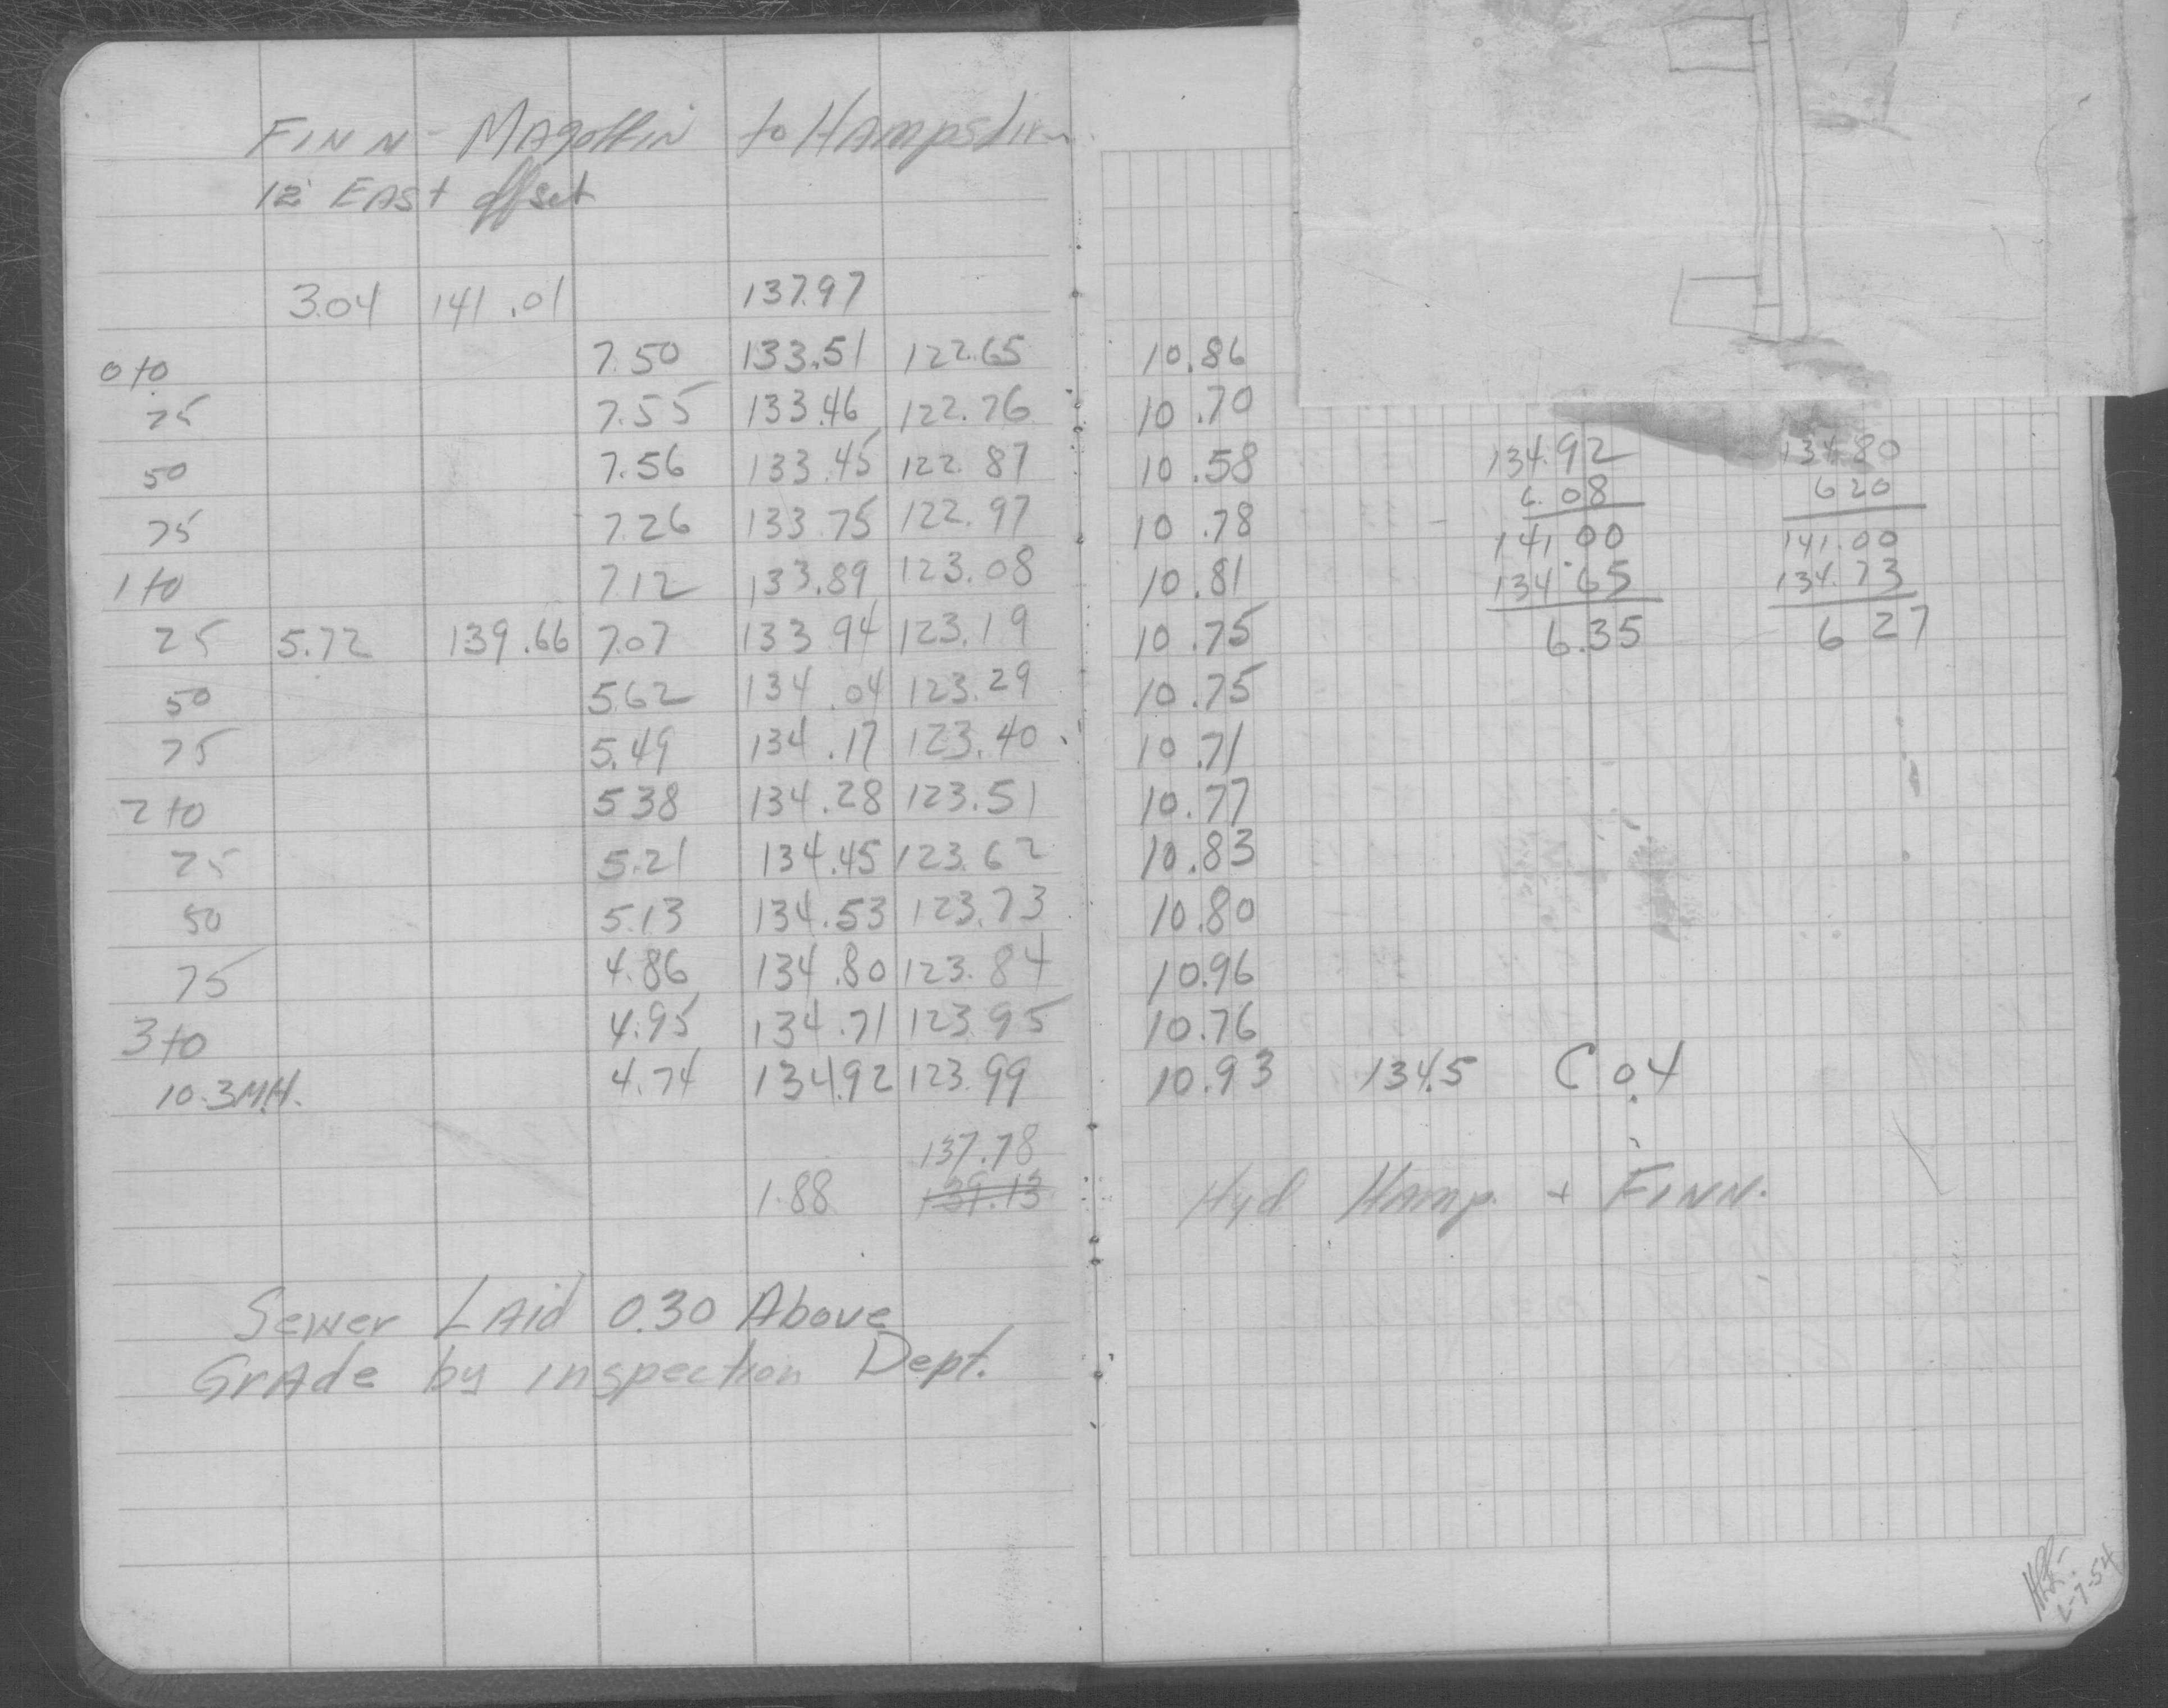 FINN - MAgoffin to HAmpshire
12' EAST offset
3.04 141.01 137.97
0+0 7.50 133.51 122.65 10.86
25 7.55 133.46 122.76 10.70
50 7.56 133.45 122.87 10.58
75 7.26 133.75 122.97 10.78
1+0 7.12 133.89 123.08 10.81
25 5.72 139.66 7.07 133.94 123.19 10.75
50 5.62 134.04 123.29 10.75
75 5.49 134.17 123.40 10.71
2+0 5.38 134.28 123.51 10.77
25 5.21 134.45 123.62 10.83
50 5.13 134.53 123.73 10.80
75 4.86 134.80 123.84 10.96
3+0 4.95 134.71 123.95 10.76
10.3 M.H. 4.74 134.92 123.99 10.93 134.5 C 0.4
137.78
1.88 139.13 Hyd HAmp. + FINN.
Sewer LAid 0.30 Above
GrAde by inspection Dept.
134.92 134.80
6.08 6 20
141.00 141.00
134.65 134.73
6.35 6 27
2-7-54